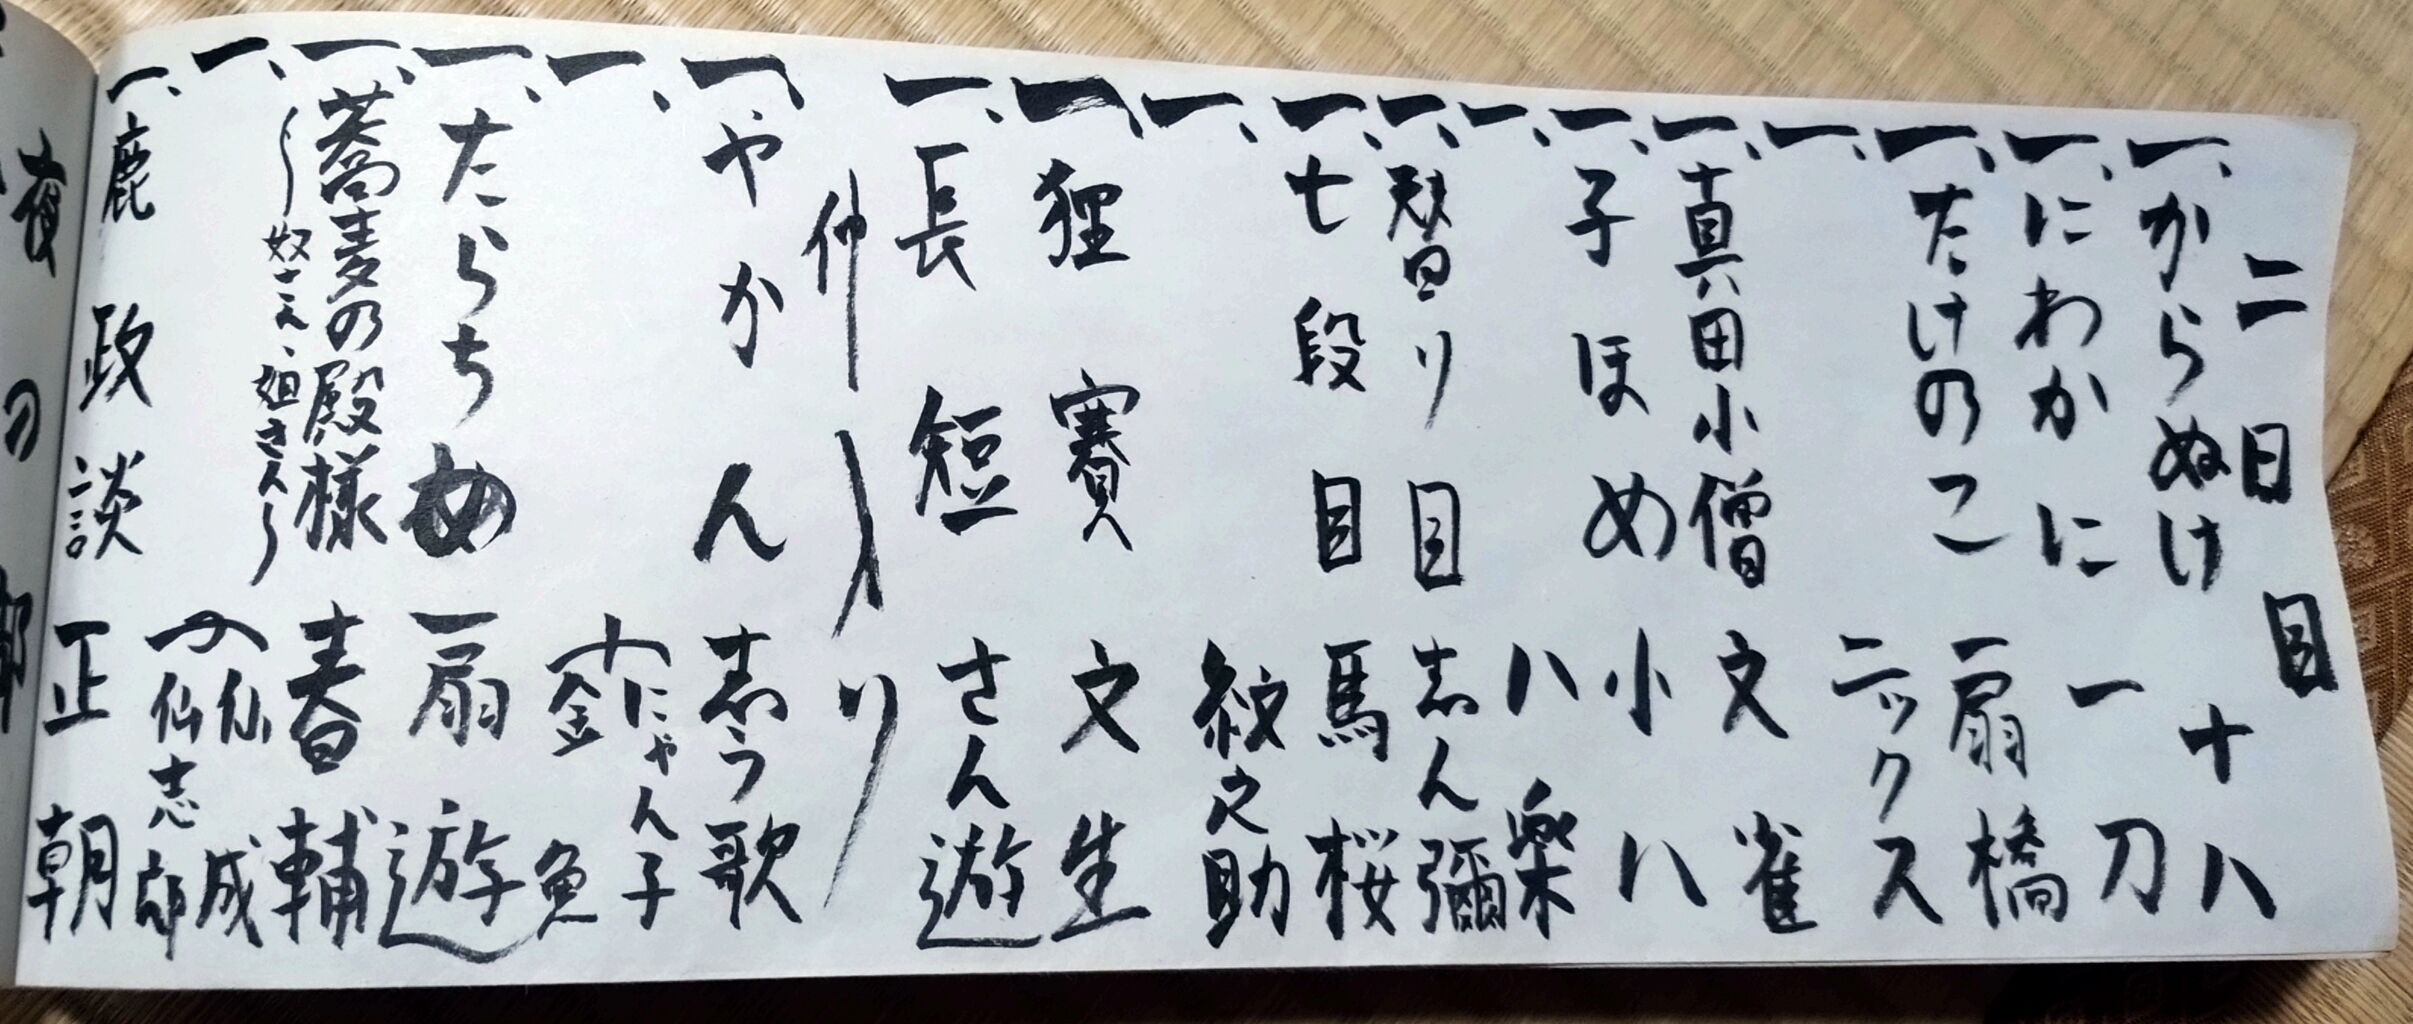 二日目
一、からぬけ 十八
一、にわかに 一刀
一、たけのこ 扇橋
一、 ニックス
一、真田小僧 文雀
一、子ほめ 小八
一、 八楽
一、替り目 志ん彌
一、七段目 馬桜
一、 紋之助
一、狸賽 文生
一、長短 さん遊
仲入り
一、やかん 志う歌
一、 にゃん子 金魚
一、たらちめ 扇遊
一、蕎麦の殿様 春輔
〜奴さん、姐さん〜
一、 仙成 仙志郎
一、鹿政談 正朝